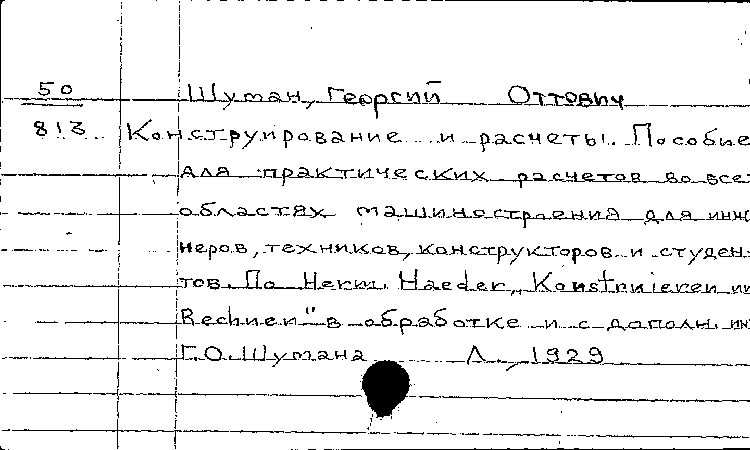 50 Шуман, Георгий Оттович
813 Конструирование и расчеты. Пособие
для практических расчетов во все
областях машиностроения для инж
неров, техников, конструкторов и студен-
тов. По Herm. Haeder, „Konstruieren
Rechnen" в обработке и с дополн. ин
Г.О. Шумана Л., 1929